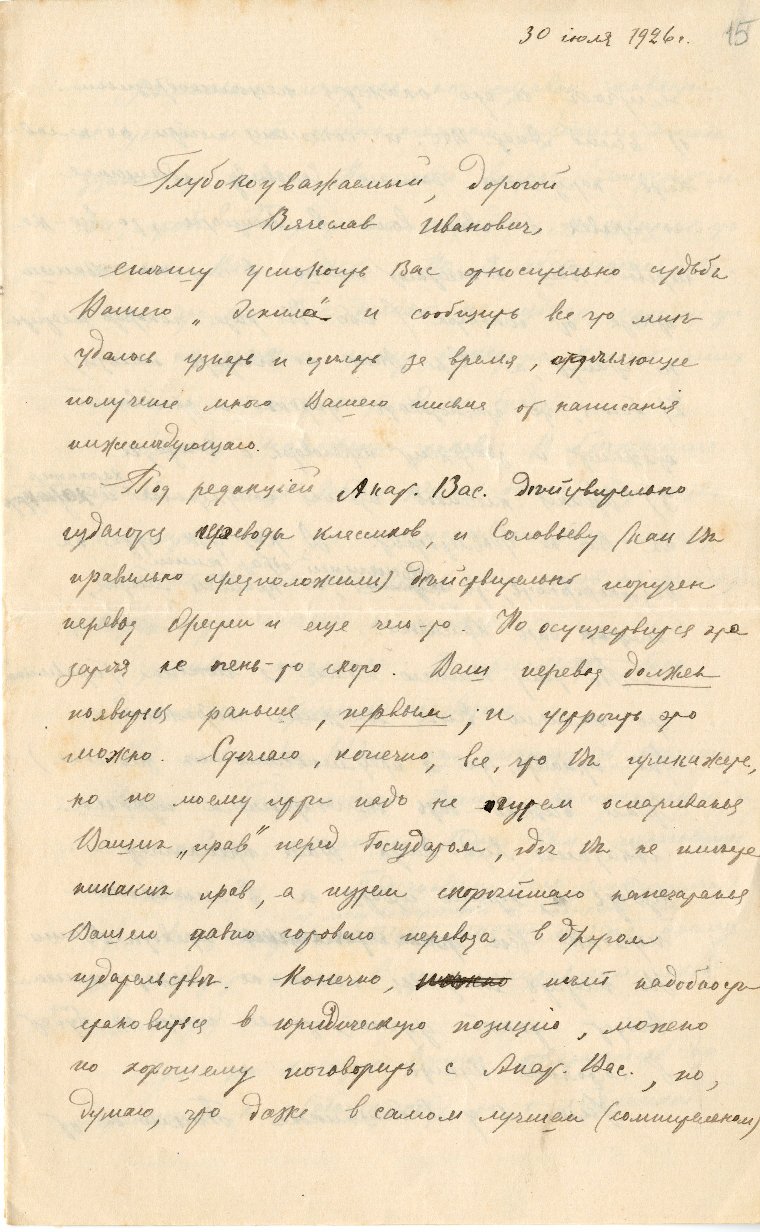 30 іюля 1926 г. 15
Глубокоуважаемый, дорогой
Вячеслав Иванович,
спѣшу успокоить Вас относительно судьбы
Вашего „Эсхила" и сообщить все что мнѣ
удалось узнать и сдѣлать за время, отдѣляющее
полученіе мною Вашего письма от написанія
нижеслѣдующаго.
Под редакціей Анат. Вас. дѣйствительно
издаются переводы классиков, и Соловьеву (как Вы
правильно предположили) дѣйствительно поручен
перевод Орестеи и еще чего-то. Но осуществится эта
затѣя не очень-то скоро. Ваш перевод должен
появиться раньше, первым; и устроить это
можно. Сдѣлаю, конечно, все, что Вы прикажете,
но по моему идти надо не путем оспариванья
Ваших „прав" перед Госиздатом, гдѣ Вы не имѣете
никаких прав, а путем скорѣйшаго напечатанья
Вашего давно готоваго перевода в другом
издательствѣ. Конечно, можно нѣт надобности
становиться в юридическую позицію, можно
по хорошему поговорить с Анат. Вас., но,
думаю, что даже в самом лучшем (сомнительном)